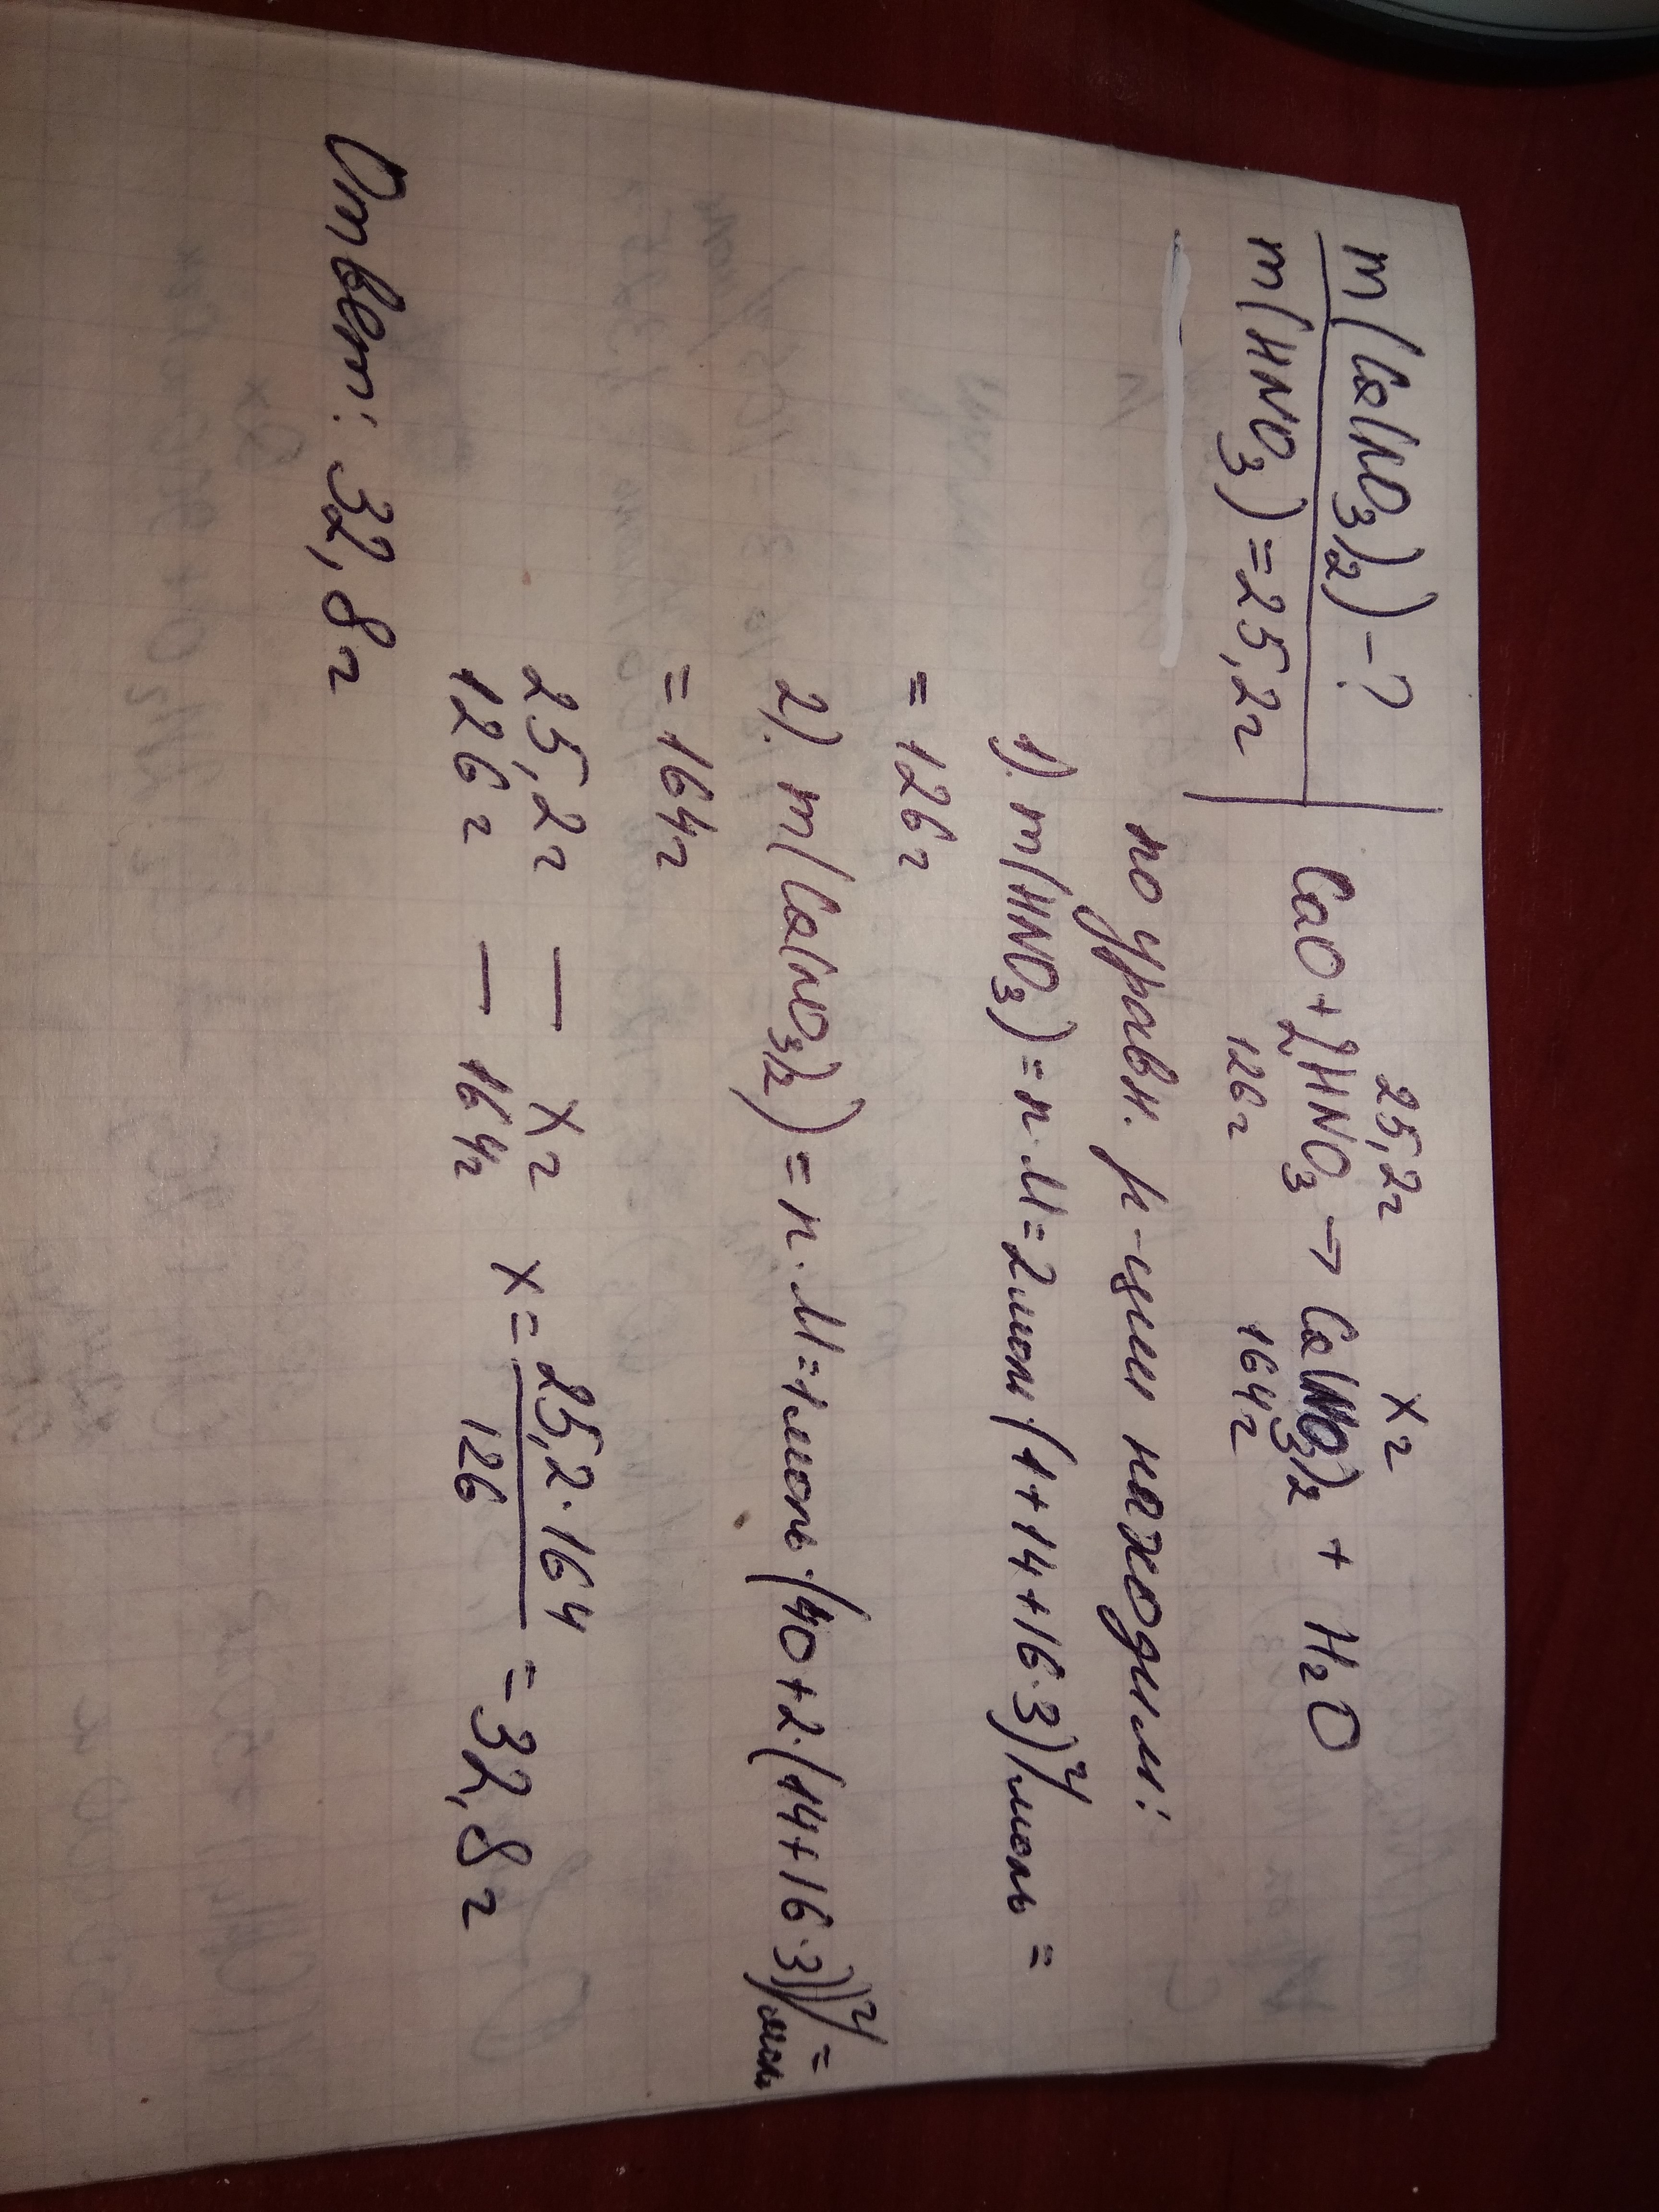 m(Ca(NO3)2) - ?
m(HNO3) = 25,2г
25,2г xг
CaO + 2HNO3 → Ca(NO3)2 + H2O
126г 164г
по уравн. р-ции находим:
1). m(HNO3) = n · M = 2моль · (1 + 14 + 16 · 3) г/моль =
= 126г
2). m(Ca(NO3)2) = n · M = 1моль · (40 + 2 · (14 + 16 · 3)) г/моль =
= 164г
25,2г — xг
126г — 164г
x = 25,2 · 164 / 126 = 32,8г
Ответ: 32,8г